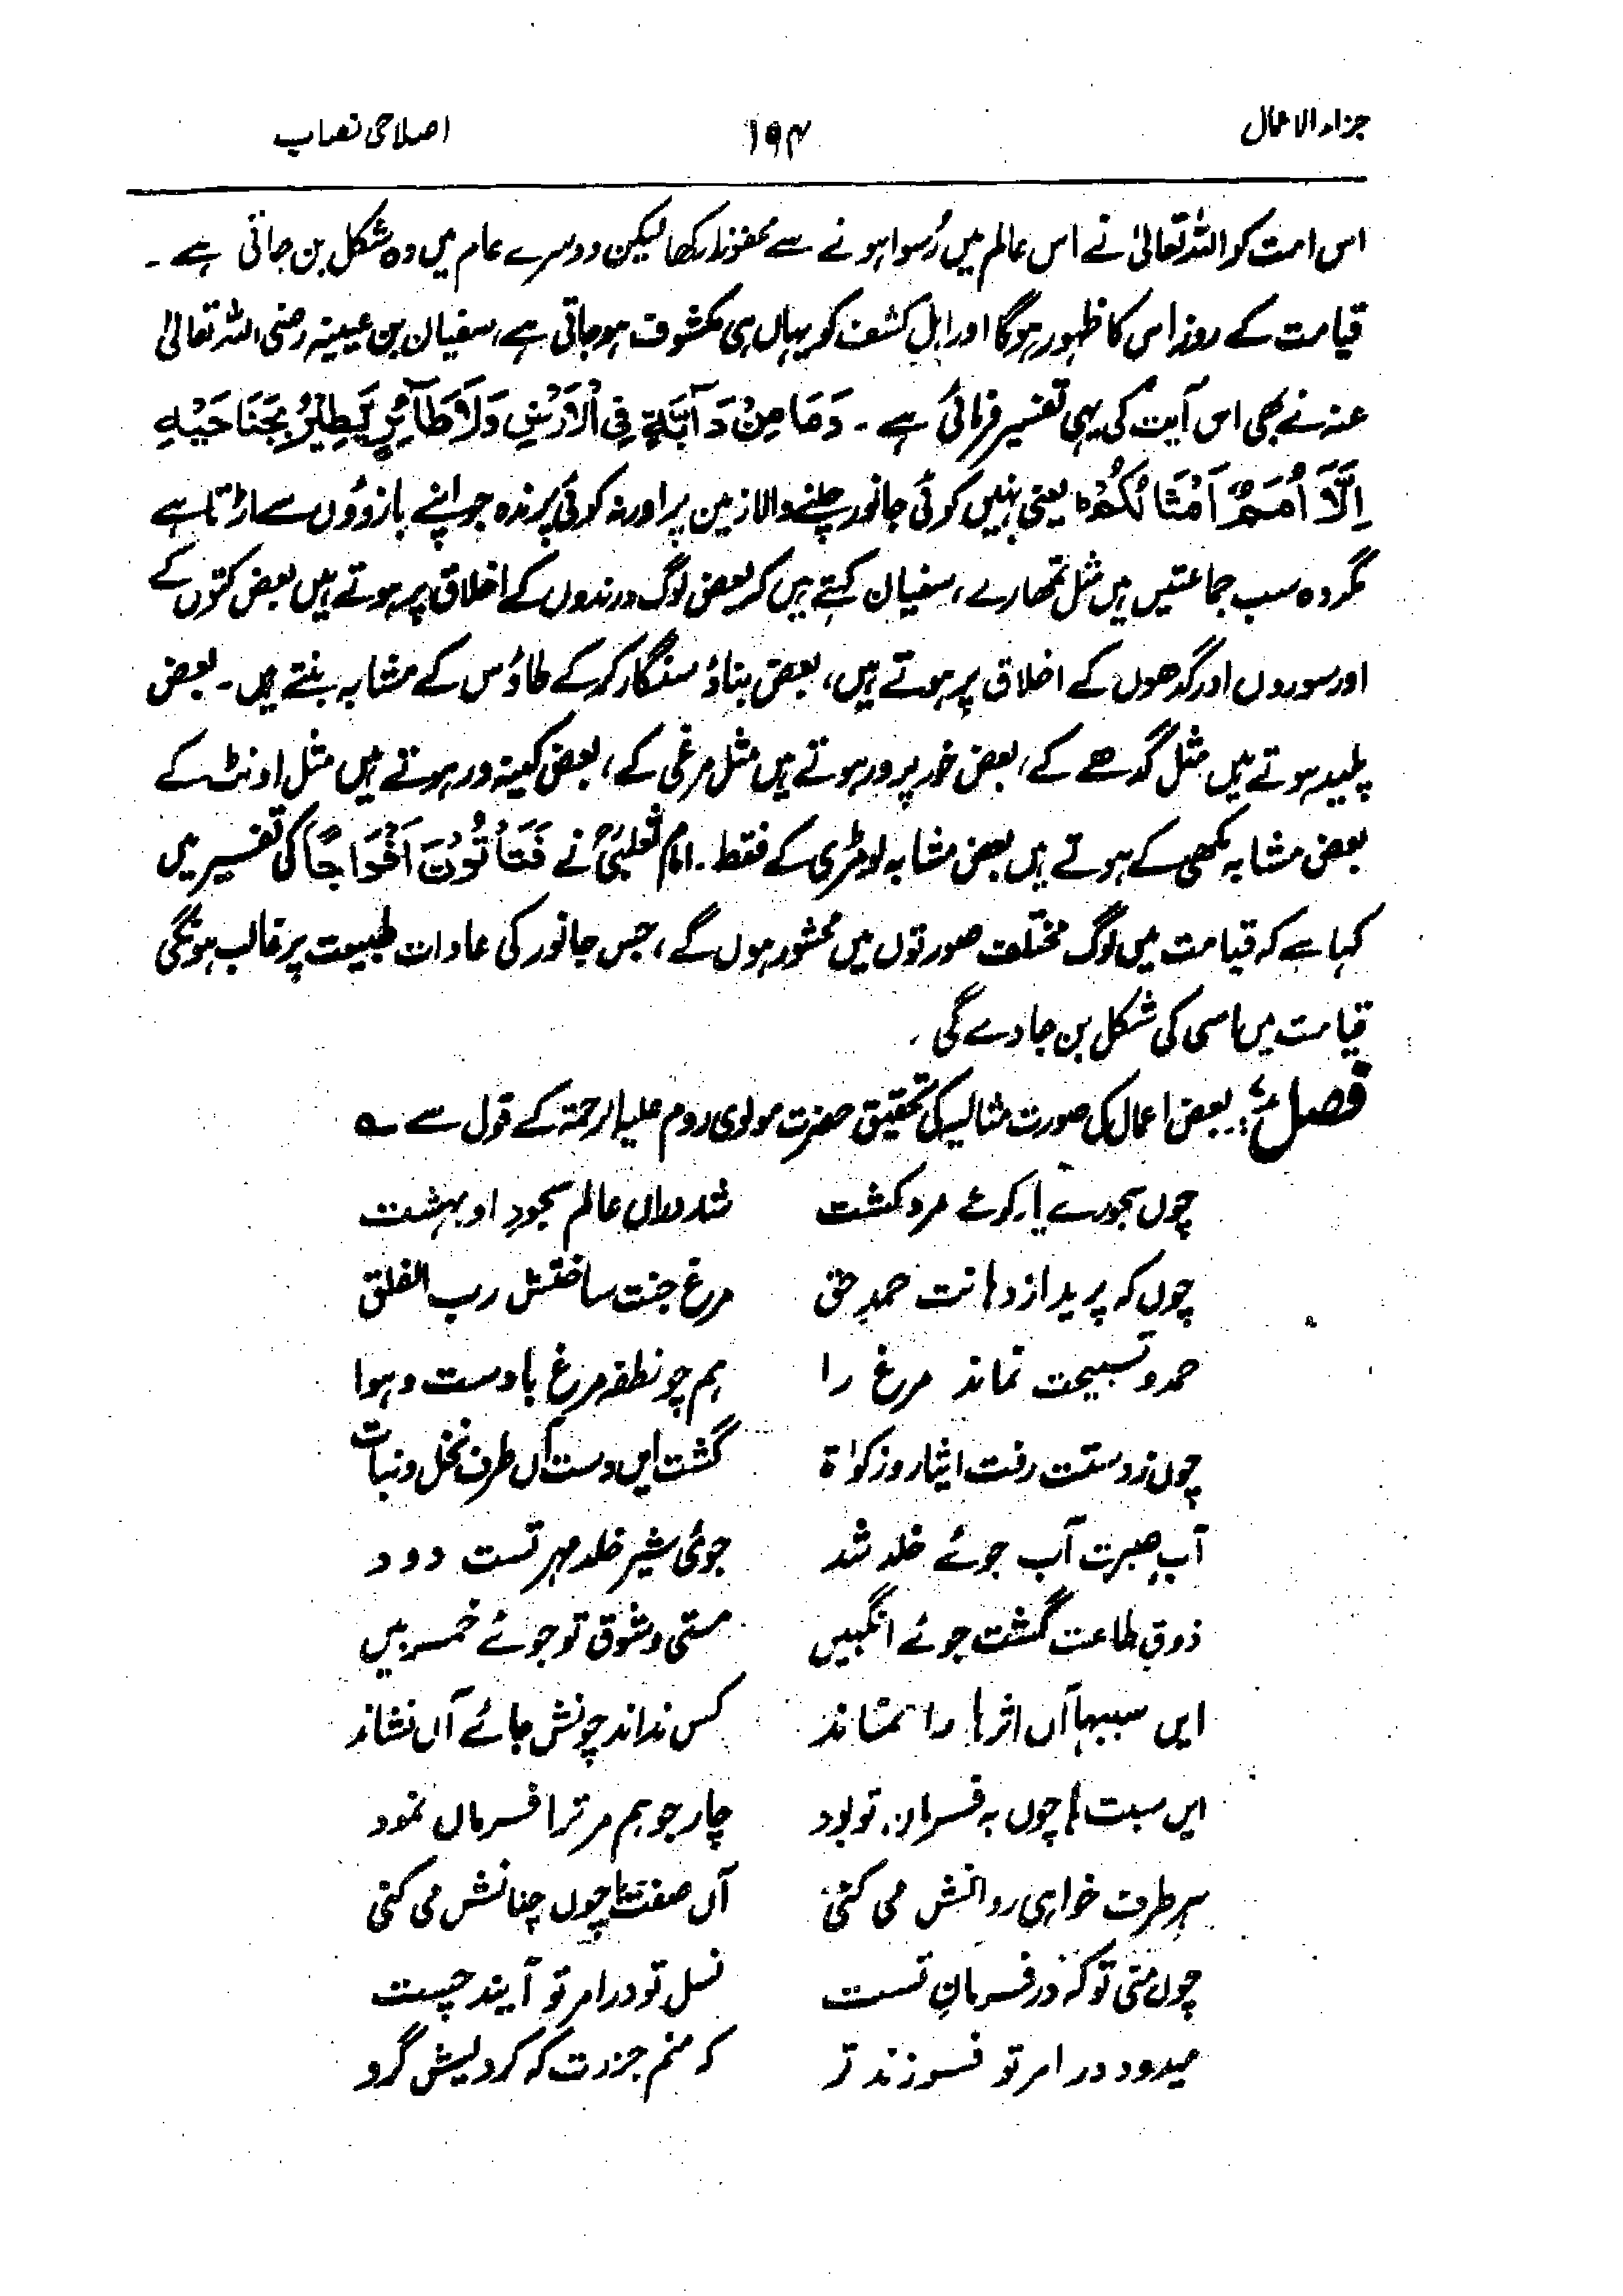 جزاء الاعمال ۱۹۴ اصلاحی نصاب
اس امت کو اللہ تعالیٰ نے اس عالم میں رُسوا ہونے سے محفوظ رکھا لیکن دوسرے عام میں وہ شکل بن جاتی ہے ۔
قیامت کے روز اس کا ظہور ہوگا اور اہل کشف کو یہاں ہی مکشوف ہو جاتی ہے، سفیان بن عیینہ رضی اللہ تعالیٰ
عنہ نے بھی اس آیت کی یہی تفسیر فرمائی ہے ۔ وَمَا مِنْ دَآبَّةٍ فِی الْاَرْضِ وَلَا طَآئِرٍ يَّطِيْرُ بِجَنَاحَيْهِ
اِلَّا اُمَمٌ اَمْثَالُكُمْ ؕ یعنی نہیں کوئی جانور چلنے والا زمین پر اور نہ کوئی پرندہ جو اپنے بازوؤں سے اڑتا ہے
مگر وہ سب جماعتیں ہیں مثل تمھارے، سفیان کہتے ہیں کہ بعض لوگ درندوں کے اخلاق پر ہوتے ہیں بعض کتوں کے
اور سوروں اور گدھوں کے اخلاق پر ہوتے ہیں، بعض بناؤ سنگار کر کے طاؤس کے مشابہ بنتے ہیں ۔ بعض
پلید ہوتے ہیں مثل گدھے کے، بعض خود پرور ہوتے ہیں مثل مرغی کے، بعض کینہ ور ہوتے ہیں مثل اونٹ کے
بعض مشابہ مکھی کے ہوتے ہیں بعض مشابہ لومڑی کے فقط ۔ امام ثعلبیؒ نے فَتَأْتُوْنَ اَفْوَاجًا کی تفسیر میں
کہا ہے کہ قیامت میں لوگ مختلف صورتوں میں محشور ہوں گے، جس جانور کی عادات طبیعت پر غالب ہونگی
قیامت میں اسی کی شکل بن جاوے گی ۔
فصل : بعض اعمال کی صورت مثالیہ کی تحقیق حضرت مولوی روم علیہ الرحمۃ کے قول سے ؎
چوں سجودے یا رکوعے مرد کشت شد دراں عالم سجودِ او بہشت
چوں کہ پرید از دہانت حمدِ حق مرغ جنت ساختش رب الفلق
حمد و تسبیحت نماند مرغ را ہم چو نطفہ مرغ بادست و ہوا
چوں ز دستت رفت ایثار و زکوٰۃ گشت ایں دست آں طرف نخل و نبات
آبِ صبرت آب جوئے خلد شد جوئ شیر خلد مہر تست و ود
ذوقِ طاعت گشت جوئے انگبیں مستی و شوق تو جوئے خمر بیں
ایں سببہا آں اثرہا را نماند کس نداند چونش جائے آں نشاند
ایں سببہا چوں بہ فرمانِ تو بود چار جو ہم مر ترا فرماں نمود
ہر طرف خواہی روانش می کنی آں صفت ہا چوں چنانش می کنی
چوں منی تو کہ در فرمانِ تست نسل تو در امر تو آیند چست
میدود در امر تو فرزند تو کہ منم جزوت کہ کردیش گرو